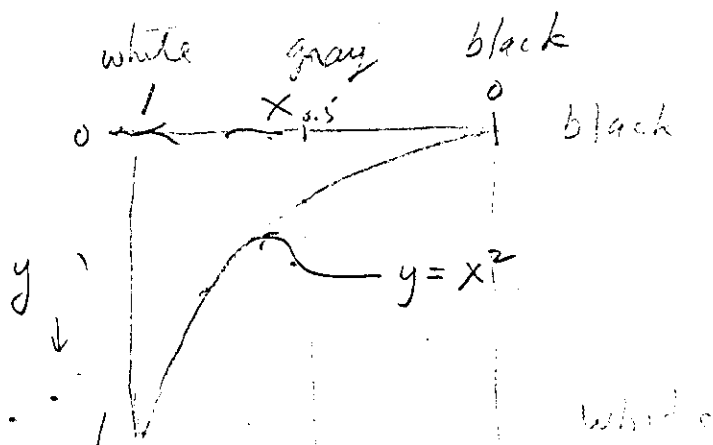 white gray black
1 X 0.5 0
0 black
y y = x²
1 white